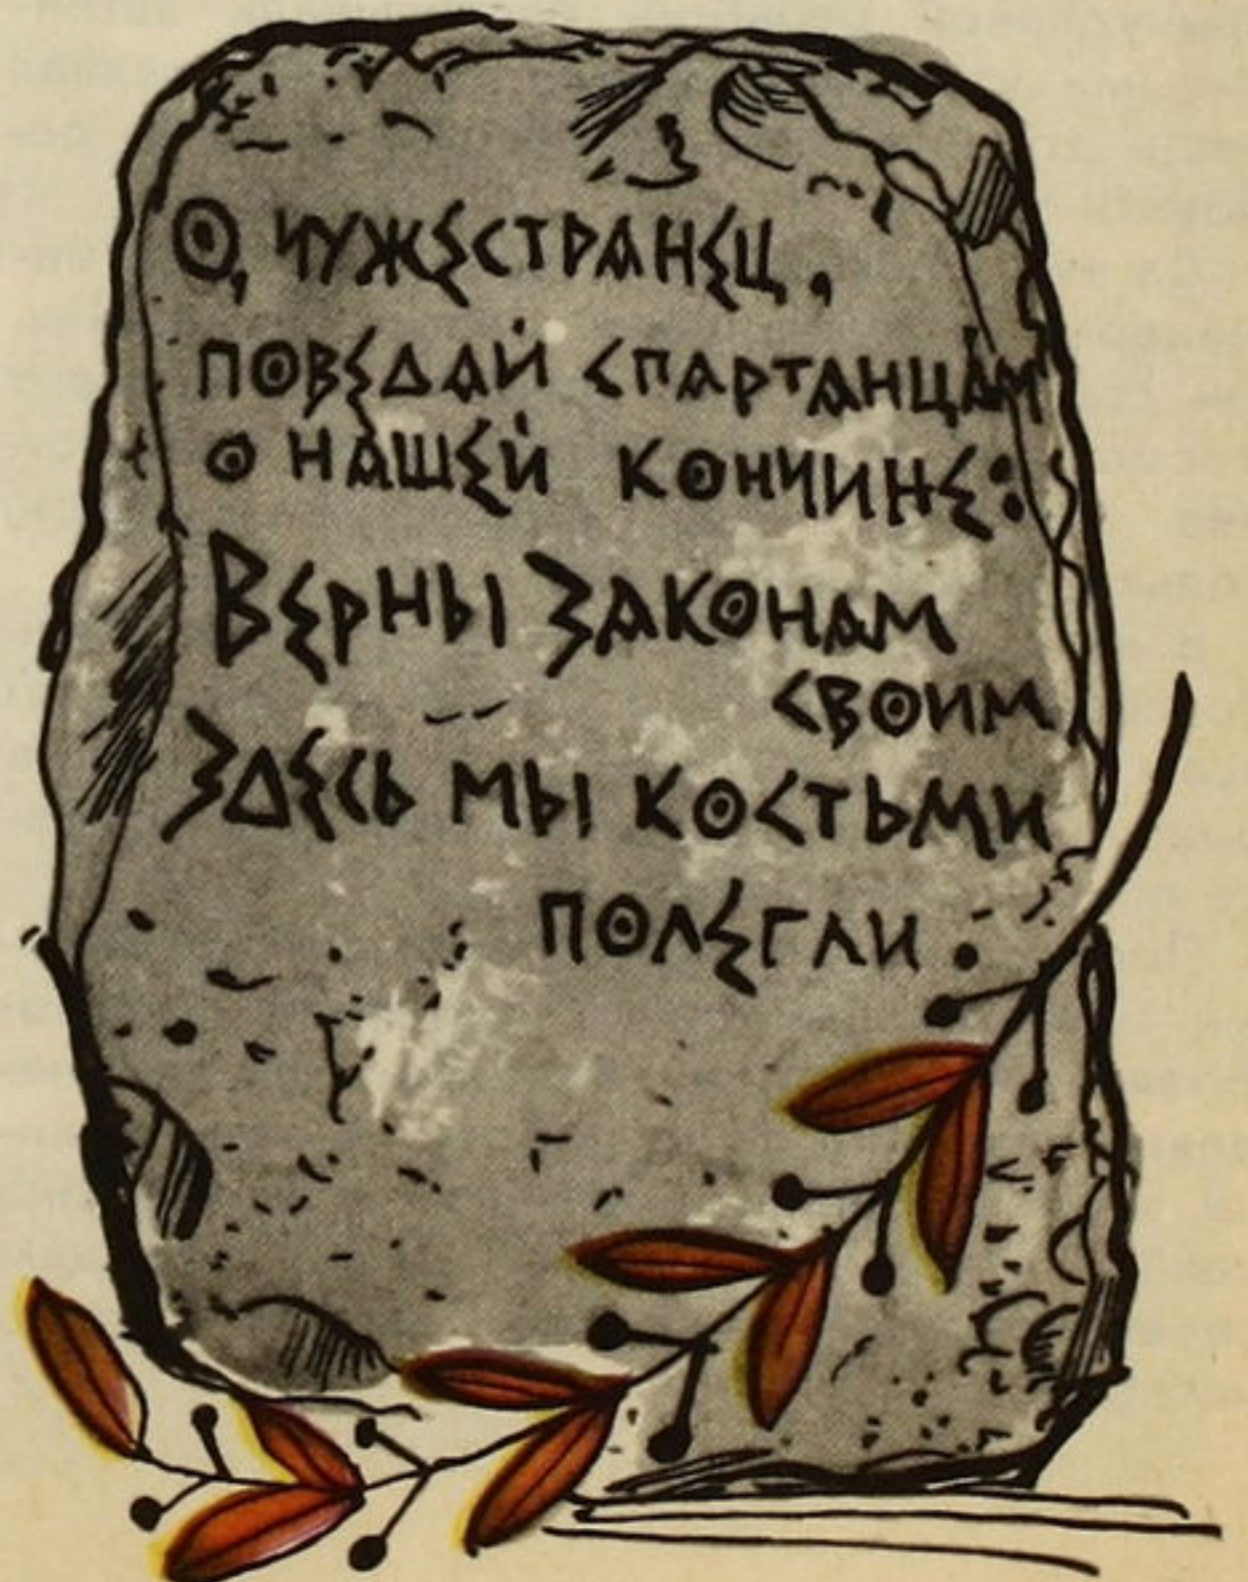 О, ЧУЖЕСТРАНЕЦ,
ПОВЕДАЙ СПАРТАНЦАМ
О НАШЕЙ КОНЧИНЕ:
ВЕРНЫ ЗАКОНАМ
СВОИМ
ЗДЕСЬ МЫ КОСТЬМИ
ПОЛЕГЛИ.